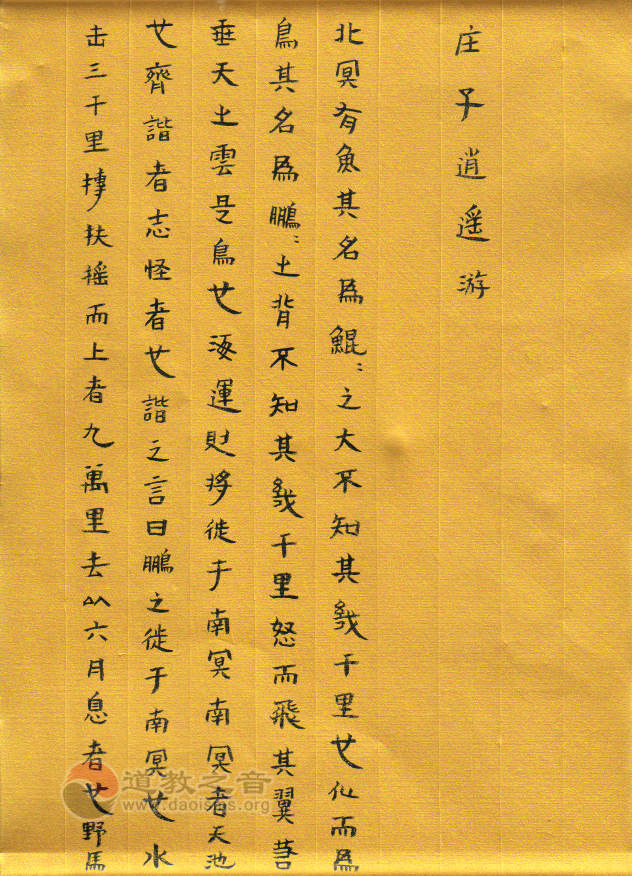 庄子逍遥游
北冥有魚其名為鯤〻之大不知其幾千里也化而為
鳥其名為鵬〻之背不知其幾千里怒而飛其翼若
垂天之雲是鳥也海運則將徙于南冥南冥者天池
也齊諧者志怪者也諧之言曰鵬之徙于南冥也水
击三千里摶扶摇而上者九萬里去以六月息者也野馬
道教之音
www.daoisms.org